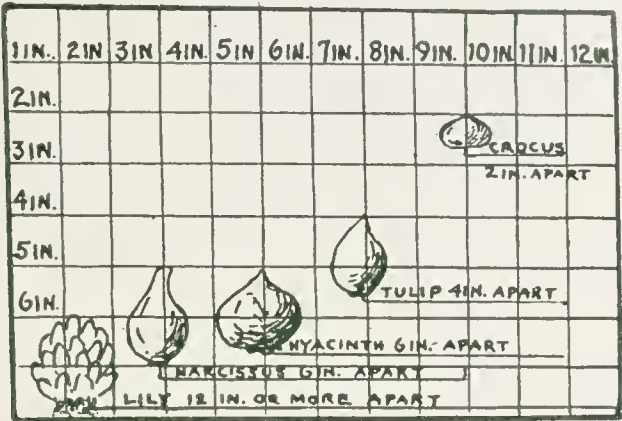 1IN. 2IN 3IN 4IN. 5IN 6IN. 7IN. 8IN. 9IN. 10IN 11IN. 12IN.
2IN.
3IN.
CROCUS
2 IN. APART
4IN.
5IN.
TULIP 4IN. APART
6IN.
HYACINTH 6IN. APART
NARCISSUS 6IN. APART
LILY 12 IN. OR MORE APART